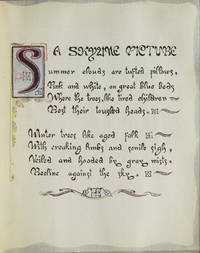 A SKYLINE PICTURE
Summer clouds are tufted pillows,
Pink and white, on great blue beds
Where the trees, like tired children
Rest their tousled heads.
Winter trees like aged folk
With creaking limbs and senile sigh,
Veiled and hooded by gray mists,
Recline against the sky.